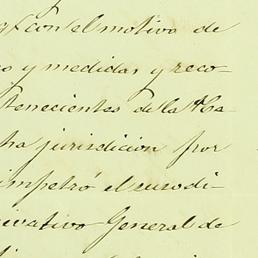 con el motivo de
s y medidas y reco-
tenecientes de la Ha-
ha jurisdicion por
impetró el curso di-
ivativo General de